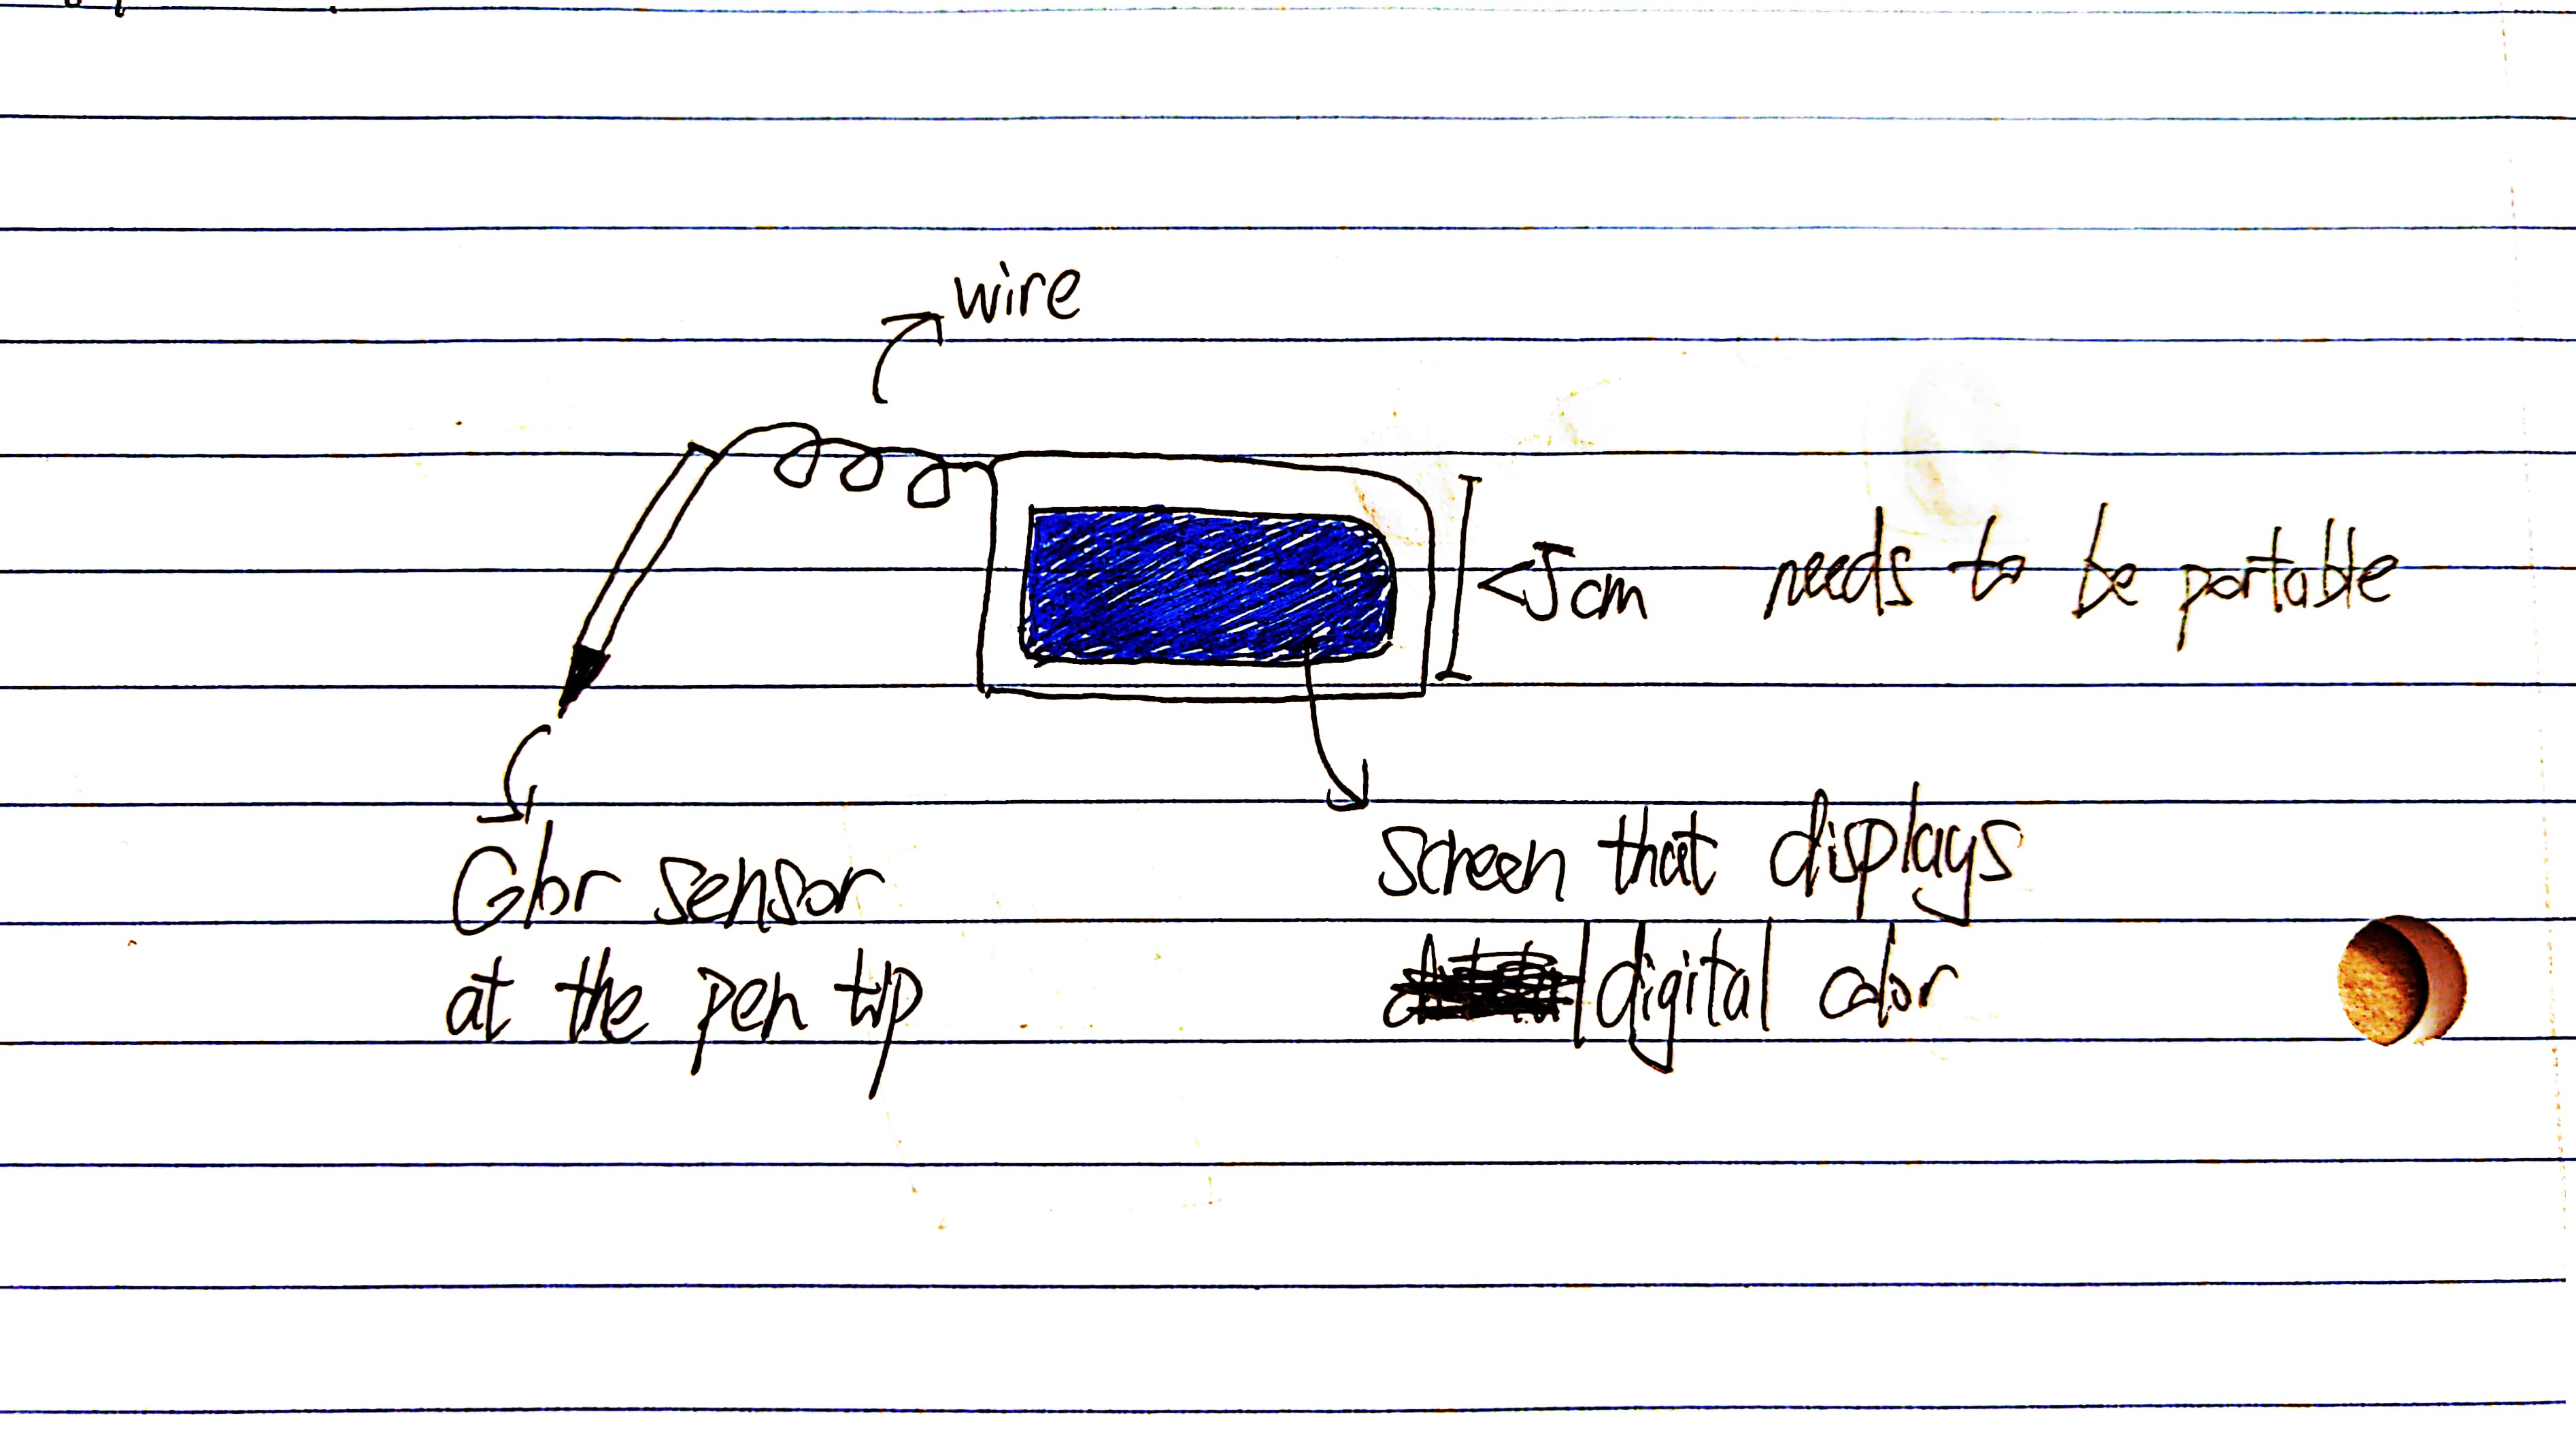 wire
<5cm needs to be portable
Color sensor
at the pen tip
screen that displays
digital color